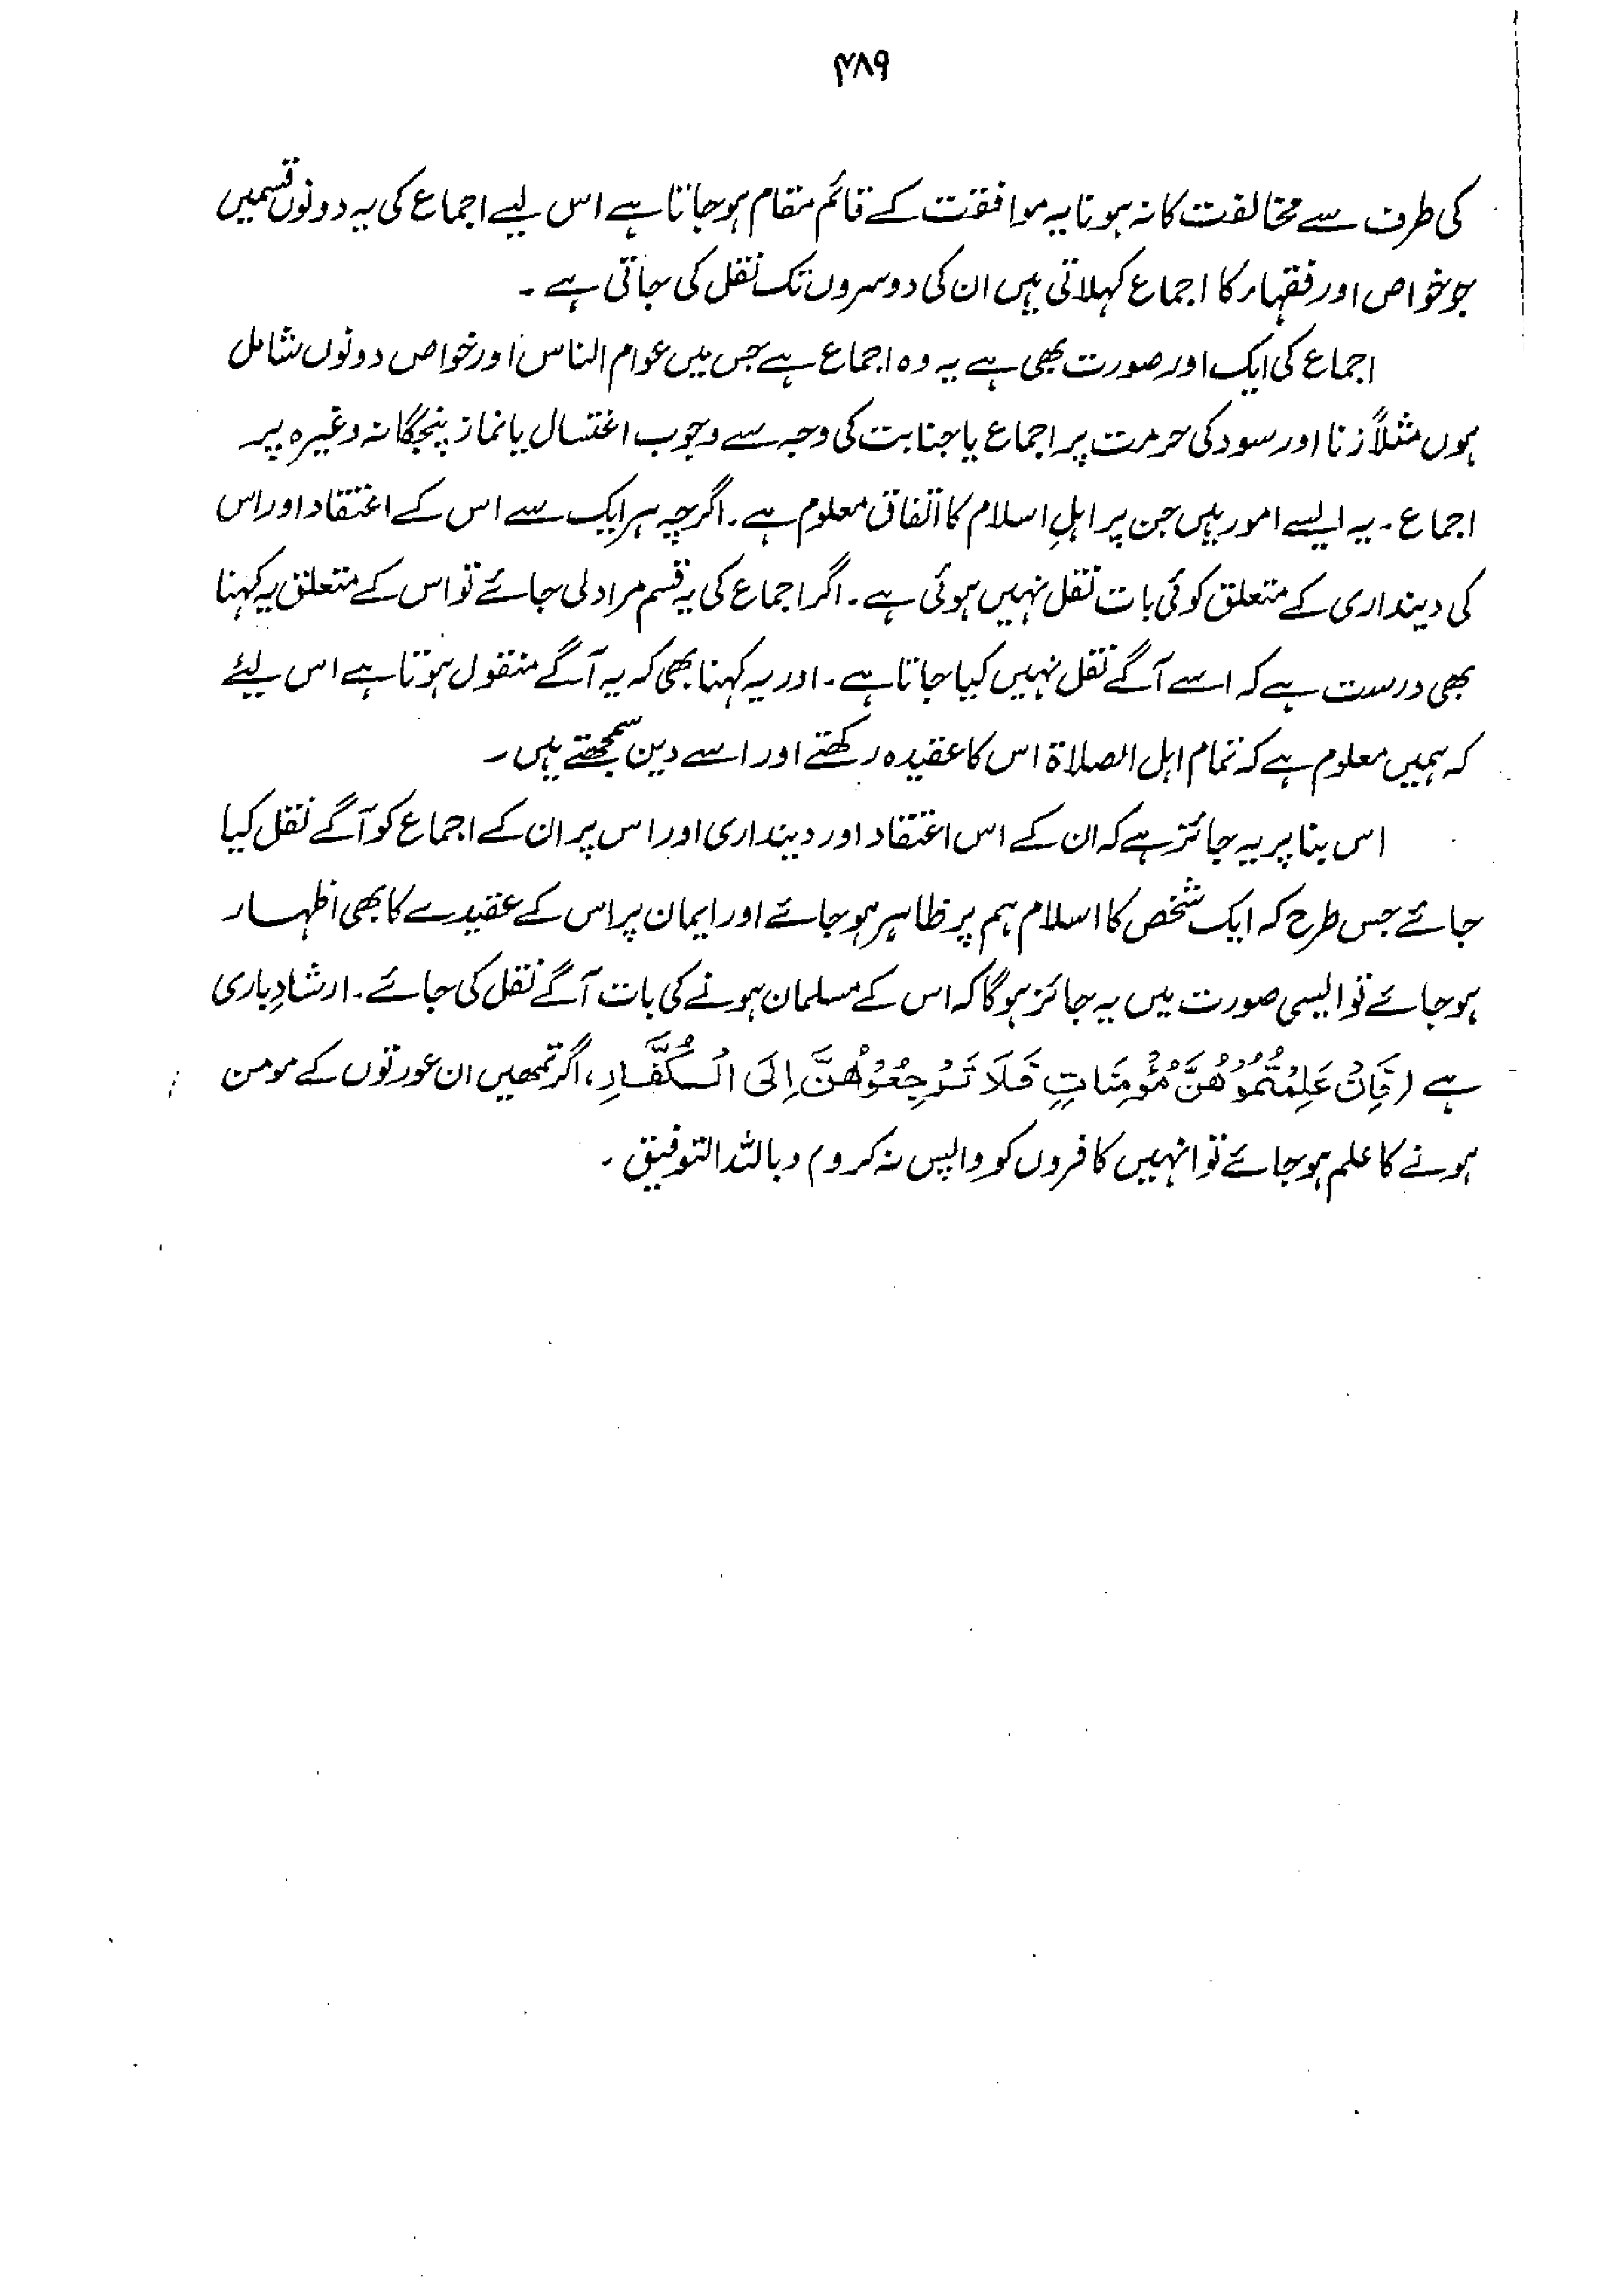 ۳۸۹
کی طرف سے مخالفت کا نہ ہونا یہ موافقت کے قائم مقام ہو جاتا ہے اس لیے اجماع کی یہ دونوں قسمیں
جو خواص اور فقہاء کا اجماع کہلاتی ہیں ان کی دوسروں تک نقل کی جاتی ہے۔
اجماع کی ایک اور صورت بھی ہے یہ وہ اجماع ہے جس میں عوام الناس اور خواص دونوں شامل
ہوں مثلاً زنا اور سود کی حرمت پر اجماع یا جنابت کی وجہ سے وجوب اغتسال یا نماز پنجگانہ وغیرہ پر
اجماع۔ یہ ایسے امور ہیں جن پر اہلِ اسلام کا اتفاق معلوم ہے۔ اگرچہ ہر ایک سے اس کے اعتقاد اور اس
کی دینداری کے متعلق کوئی بات نقل نہیں ہوئی ہے۔ اگر اجماع کی یہ قسم مراد لی جائے تو اس کے متعلق یہ کہنا
بھی درست ہے کہ اسے آگے نقل نہیں کیا جاتا ہے۔ اور یہ کہنا بھی کہ یہ آگے منقول ہوتا ہے اس لیئے
کہ ہمیں معلوم ہے کہ تمام اہل الصلاۃ اس کا عقیدہ رکھتے اور اسے دین سمجھتے ہیں۔
اس بنا پر یہ جائز ہے کہ ان کے اس اعتقاد اور دینداری اور اس پر ان کے اجماع کو آگے نقل کیا
جائے جس طرح کہ ایک شخص کا اسلام ہم پر ظاہر ہو جائے اور ایمان پر اس کے عقیدے کا بھی اظہار
ہو جائے تو ایسی صورت میں یہ جائز ہو گا کہ اس کے مسلمان ہونے کی بات آگے نقل کی جائے۔ ارشادِ باری
ہے (فَاِنْ عَلِمْتُمُوْهُنَّ مُؤْمِنَاتٍ فَلَا تَرْجِعُوْهُنَّ اِلَى الْكُفَّارِ، اگر تمھیں ان عورتوں کے مومن
ہونے کا علم ہو جائے تو انہیں کافروں کو واپس نہ کرو م وباللہ التوفیق۔